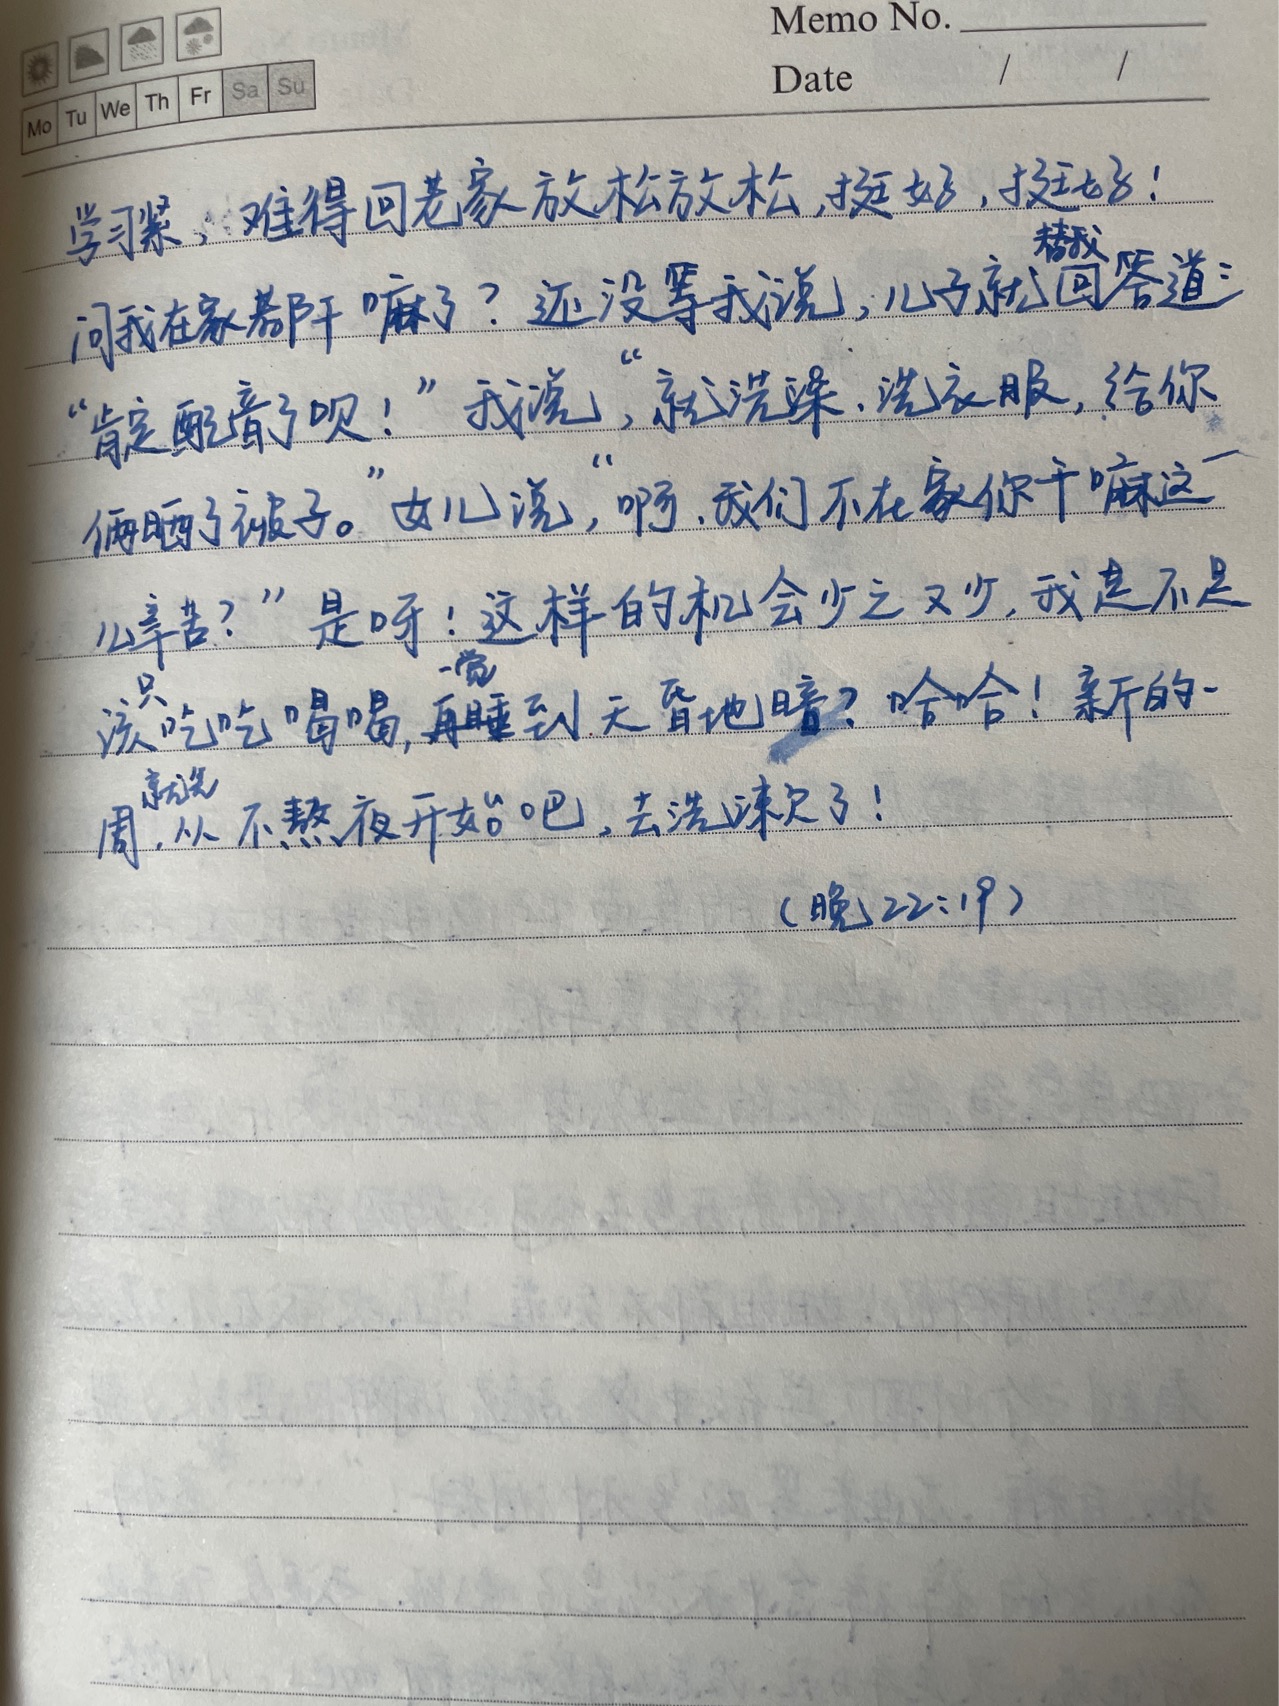 Memo No.
Date / /
Mo Tu We Th Fr Sa Su
学习紧，难得回老家放松放松，挺好，挺好！
问我在家都干嘛了？还没等我说，儿子就替我回答道：
“肯定配音了呗！”我说，“就洗澡、洗衣服，给你
俩晒了被子。”女儿说，“啊，我们不在家你干嘛这一
么辛苦？”是呀！这样的机会少之又少，我是不是
该只吃吃喝喝，再一觉睡到天昏地暗？哈哈！新的一
周，就先从不熬夜开始吧，去洗漱了！
（晚22:19）